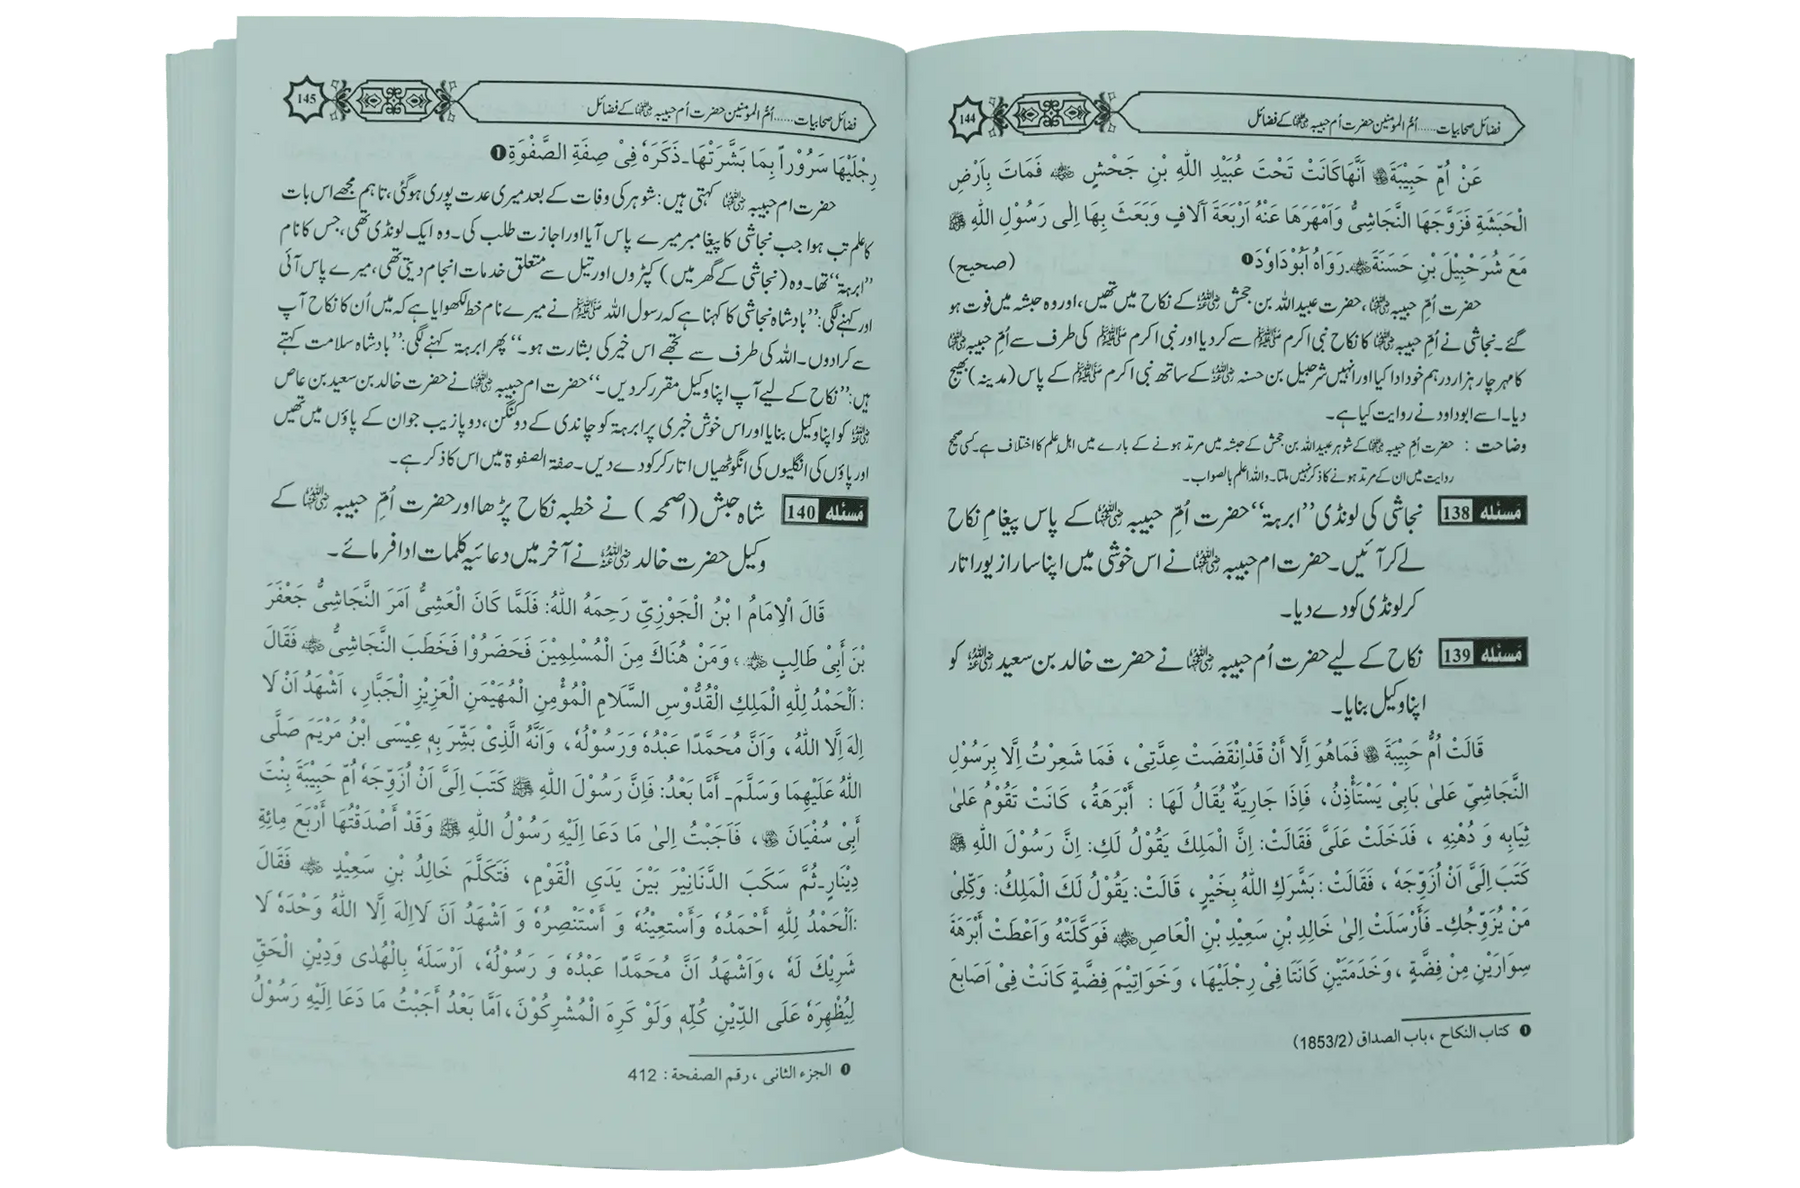 144
فضائل صحابیات ...... اُمّ المومنین حضرت اُم حبیبہ رضی اللہ عنہا کے فضائل
عَنْ اُمِّ حَبِيْبَةَ رضی اللہ عنہا اَنَّهَا كَانَتْ تَحْتَ عُبَيْدِ اللّٰهِ بْنِ جَحْشٍ رضی اللہ عنہ فَمَاتَ بِاَرْضِ
الْحَبَشَةِ فَزَوَّجَهَا النَّجَاشِيُّ وَاَمْهَرَهَا عَنْهُ اَرْبَعَةَ آلَافٍ وَبَعَثَ بِهَا اِلٰى رَسُوْلِ اللّٰهِ ﷺ
مَعَ شُرَحْبِيْلَ بْنِ حَسَنَةَ رضی اللہ عنہ۔ رَوَاهُ اَبُوْدَاوٗدَ ❶ (صحيح)
حضرت اُمّ حبیبہ رضی اللہ عنہا، حضرت عبید اللہ بن جحش رضی اللہ عنہ کے نکاح میں تھیں، اور وہ حبشہ میں فوت ہو
گئے۔ نجاشی نے اُمّ حبیبہ رضی اللہ عنہا کا نکاح نبی اکرم ﷺ سے کر دیا اور نبی اکرم ﷺ کی طرف سے اُمّ حبیبہ رضی اللہ عنہا
کا مہر چار ہزار درہم خود ادا کیا اور انہیں شرحبیل بن حسنہ رضی اللہ عنہ کے ساتھ نبی اکرم ﷺ کے پاس (مدینہ) بھیج
دیا۔ اسے ابوداود نے روایت کیا ہے۔
وضاحت : حضرت اُمّ حبیبہ رضی اللہ عنہا کے شوہر عبید اللہ بن جحش کے حبشہ میں مرتد ہونے کے بارے میں اہل علم کا اختلاف ہے۔ کسی صحیح
روایت میں ان کے مرتد ہونے کا ذکر نہیں ملتا۔ واللہ اعلم بالصواب۔
مَسئله 138 نجاشی کی لونڈی "ابرہۃ" حضرت اُمّ حبیبہ رضی اللہ عنہا کے پاس پیغام نکاح
لے کر آئیں۔ حضرت ام حبیبہ رضی اللہ عنہا نے اس خوشی میں اپنا سارا زیور اتار
کر لونڈی کو دے دیا۔
مَسئله 139 نکاح کے لیے حضرت اُم حبیبہ رضی اللہ عنہا نے حضرت خالد بن سعید رضی اللہ عنہ کو
اپنا وکیل بنایا۔
قَالَتْ اُمُّ حَبِيْبَةَ رضی اللہ عنہا فَمَاهُوَ اِلَّا أَنْ قَدْاِنْقَضَتْ عِدَّتِيْ، فَمَا شَعِرْتُ اِلَّا بِرَسُوْلِ
النَّجَاشِيِّ عَلىٰ بَابِيْ يَسْتَأْذِنُ، فَاِذَا جَارِيَةٌ يُقَالُ لَهَا : أَبْرَهَةُ، كَانَتْ تَقُوْمُ عَلىٰ
ثِيَابِهِ وَ دُهْنِهِ ، فَدَخَلَتْ عَلَيَّ فَقَالَتْ: اِنَّ الْمَلِكَ يَقُوْلُ لَكِ: اِنَّ رَسُوْلَ اللّٰهِ ﷺ
كَتَبَ اِلَيَّ اَنْ اُزَوِّجَهٗ ، فَقَالَتْ: بَشَّرَكِ اللّٰهُ بِخَيْرٍ، قَالَتْ: يَقُوْلُ لَكِ الْمَلِكُ: وَكِّلِيْ
مَنْ يُزَوِّجُكِ۔ فَأَرْسَلَتْ اِلىٰ خَالِدِ بْنِ سَعِيْدِ بْنِ الْعَاصِ رضی اللہ عنہ فَوَكَّلَتْهُ وَاَعْطَتْ أَبْرَهَةَ
سِوَارَيْنِ مِنْ فِضَّةٍ ، وَخَدَمَتَيْنِ كَانَتَا فِيْ رِجْلَيْهَا، وَخَوَاتِيْمَ فِضَّةٍ كَانَتْ فِيْ اَصَابِعَ
❶ كتاب النكاح ، باب الصداق (1853/2)
145
فضائل صحابیات ...... اُمّ المومنین حضرت اُم حبیبہ رضی اللہ عنہا کے فضائل
رِجْلَيْهَا سَرُوْراً بِمَا بَشَّرَتْهَا۔ ذَكَرَهٗ فِيْ صِفَةِ الصَّفْوَةِ ❶
حضرت ام حبیبہ رضی اللہ عنہا کہتی ہیں: شوہر کی وفات کے بعد میری عدت پوری ہوگئی، تاہم مجھے اس بات
کا علم تب ہوا جب نجاشی کا پیغامبر میرے پاس آیا اور اجازت طلب کی۔ وہ ایک لونڈی تھی، جس کا نام
"ابرہۃ" تھا۔ وہ (نجاشی کے گھر میں) کپڑوں اور تیل سے متعلق خدمات انجام دیتی تھی، میرے پاس آئی
اور کہنے لگی: "بادشاہ نجاشی کا کہنا ہے کہ رسول اللہ ﷺ نے میرے نام خط لکھوایا ہے کہ میں اُن کا نکاح آپ
سے کرادوں۔ اللہ کی طرف سے تجھے اس خیر کی بشارت ہو۔" پھر ابرہۃ کہنے لگی: "بادشاہ سلامت کہتے
ہیں: "نکاح کے لیے آپ اپنا وکیل مقرر کر دیں۔" حضرت ام حبیبہ رضی اللہ عنہا نے حضرت خالد بن سعید بن عاص
رضی اللہ عنہ کو اپنا وکیل بنایا اور اس خوش خبری پر ابرہۃ کو چاندی کے دو کنگن، دو پازیب جو ان کے پاؤں میں تھیں
اور پاؤں کی انگلیوں کی انگوٹھیاں اتار کر کو دے دیں۔ صفۃ الصفوۃ میں اس کا ذکر ہے۔
مَسئله 140 شاہ حبش (اصمحہ) نے خطبہ نکاح پڑھا اور حضرت اُمّ حبیبہ رضی اللہ عنہا کے
وکیل حضرت خالد رضی اللہ عنہ نے آخر میں دعائیہ کلمات ادا فرمائے۔
قَالَ الْاِمَامُ ابْنُ الْجَوْزِيِّ رَحِمَهُ اللّٰهُ: فَلَمَّا كَانَ الْعَشِيُّ اَمَرَ النَّجَاشِيُّ جَعْفَرَ
بْنَ أَبِيْ طَالِبٍ رضی اللہ عنہ ؛ وَمَنْ هُنَاكَ مِنَ الْمُسْلِمِيْنَ فَحَضَرُوْا فَخَطَبَ النَّجَاشِيُّ رضی اللہ عنہ فَقَالَ
:اَلْحَمْدُ لِلّٰهِ الْمَلِكِ الْقُدُّوْسِ السَّلَامِ الْمُؤْمِنِ الْمُهَيْمَنِ الْعَزِيْزِ الْجَبَّارِ، اَشْهَدُ اَنْ لَا
اِلٰهَ اِلَّا اللّٰهُ، وَاَنَّ مُحَمَّدًا عَبْدُهٗ وَرَسُوْلُهٗ، وَاَنَّهُ الَّذِيْ بَشِّرَ بِهٖ عِيْسَى ابْنُ مَرْيَمَ صَلَّى
اللّٰهُ عَلَيْهِمَا وَسَلَّمَ۔ أَمَّا بَعْدُ: فَاِنَّ رَسُوْلَ اللّٰهِ ﷺ كَتَبَ اِلَيَّ اَنْ اُزَوِّجَهٗ اُمَّ حَبِيْبَةَ بِنْتَ
أَبِيْ سُفْيَانَ رضی اللہ عنہا، فَاَجَبْتُ اِلىٰ مَا دَعَا اِلَيْهِ رَسُوْلُ اللّٰهِ ﷺ وَقَدْ أَصْدَقْتُهَا أَرْبَعَ مِائِةِ
دِيْنَارٍ۔ ثُمَّ سَكَبَ الدَّنَانِيْرَ بَيْنَ يَدَيِ الْقَوْمِ، فَتَكَلَّمَ خَالِدُ بْنِ سَعِيْدٍ رضی اللہ عنہ فَقَالَ
:اَلْحَمْدُ لِلّٰهِ أَحْمَدُهٗ وَأَسْتَعِيْنُهٗ وَ أَسْتَنْصِرُهٗ وَ اَشْهَدُ اَنَ لَااِلٰهَ اِلَّا اللّٰهُ وَحْدَهٗ لَا
شَرِيْكَ لَهٗ ،وَاَشْهَدُ اَنَّ مُحَمَّدًا عَبْدُهٗ وَ رَسُوْلُهٗ، اَرْسَلَهٗ بِالْهُدٰى وَدِيْنِ الْحَقِّ
لِيُظْهِرَهٗ عَلَى الدِّيْنِ كُلِّهٖ وَلَوْ كَرِهَ الْمُشْرِكُوْنَ، اَمَّا بَعْدُ اَجَبْتُ مَا دَعَا اِلَيْهِ رَسُوْلُ
❶ الجزء الثانى ، رقم الصفحة : 412